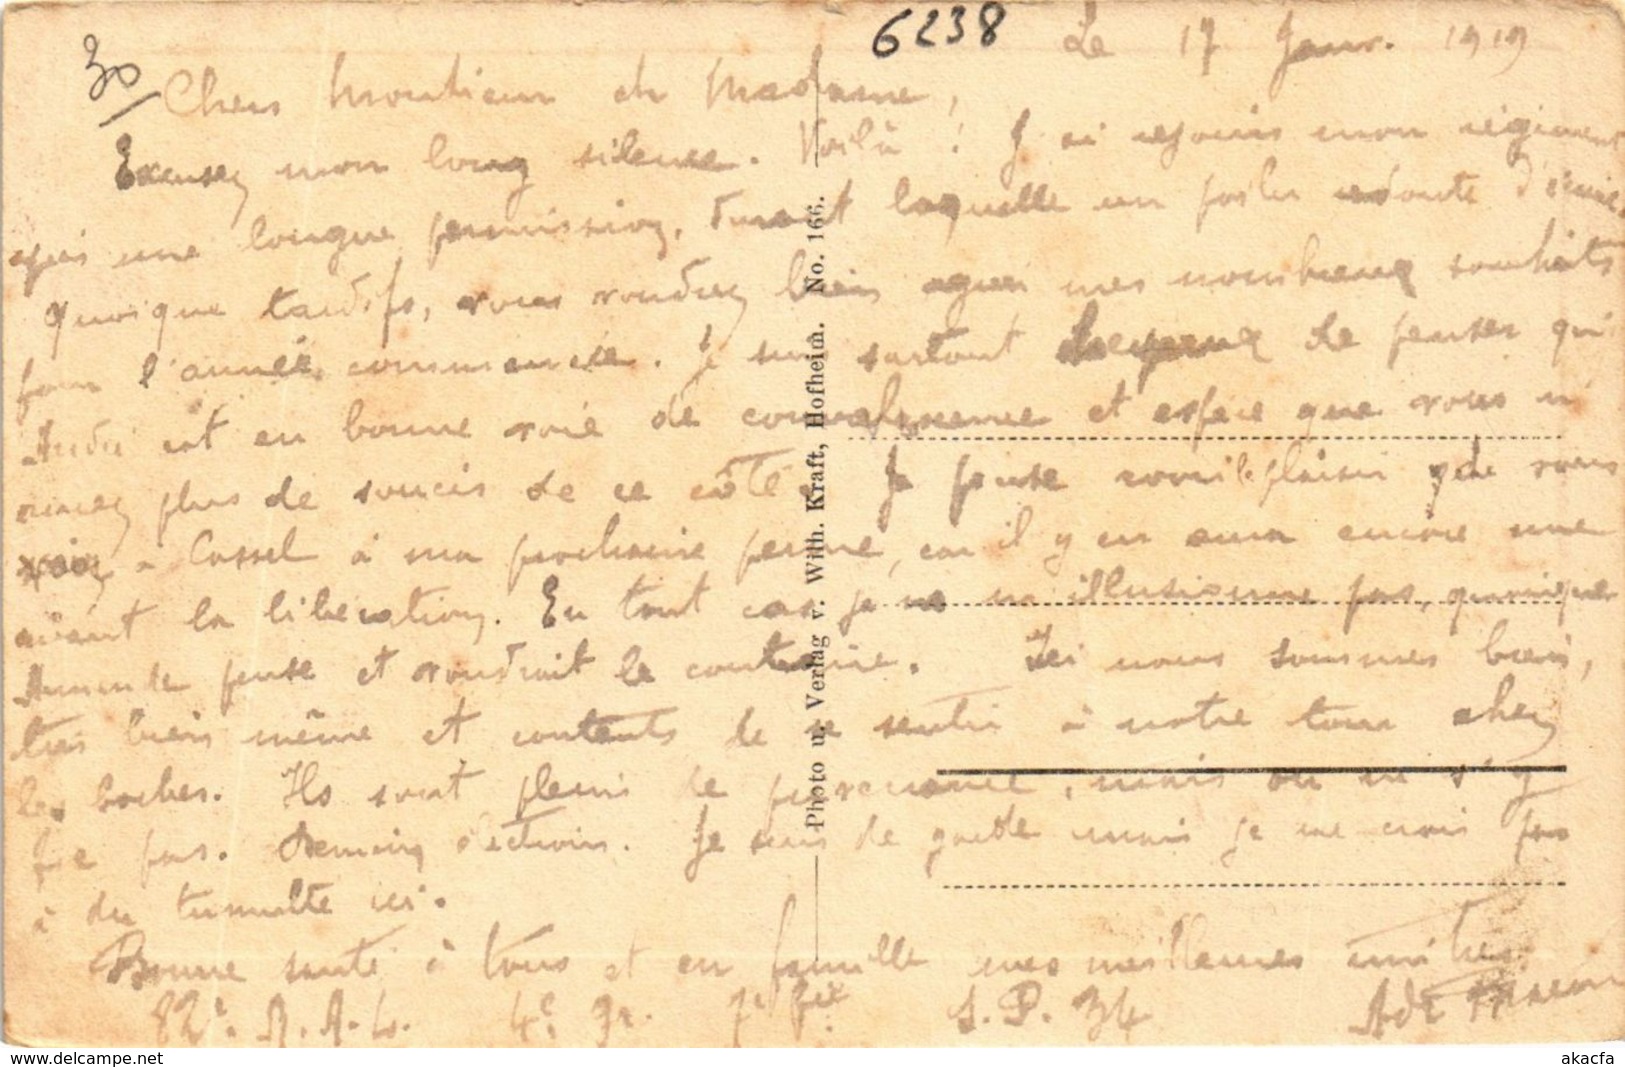 6238
Le 17 Janv. 1919
30
Chers Monsieur et Madame,
Excusez mon long silence. Voilà ! J'ai rejoins mon régiment
après une longue permission, durant laquelle un poilu redoute d'écrire.
Quoique tardifs, vous voudrez bien agréer mes nombreux souhaits
pour l'année commencée. Je suis surtout heureux de penser qu'
André est en bonne voie de convalescence et espère que vous n'
aurez plus de soucis de ce côté. Je pense avoir le plaisir de vous
voir à Cassel à ma prochaine perme, car il y en aura encore une
avant la libération. En tout cas je ne m'illusionne pas, quoique
Armande pense et voudrait le contraire. Ici nous sommes bien,
très bien même et contents de se sentir à notre tour chez
les boches. Ils sont pleins de prévenance, mais on ne s'y
fie pas. Demain élections. Je suis de garde mais je ne crois pas
à du tumulte ici.
Bonne santé à tous et en famille mes meilleures amitiés
82e. R.A.L. 4e. Gr. 7e Bie S.P. 34
Photo u. Verlag v. Wilh. Kraft, Hofheim. No. 166.
www.delcampe.net
akacfa